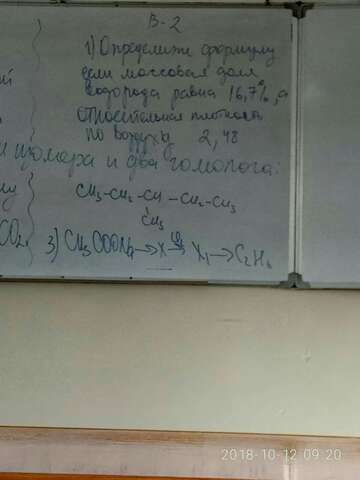 В-2
1) Определите формулу
если массовая доля
водорода равна 16,7%, а
относительная плотность
по воздуху 2,48
изомера и два гомолога:
CH3-CH2-CH-CH2-CH3
CH3
CO2
3) CH3COONa→X→X1→C2H6
2018-10-12 09:20